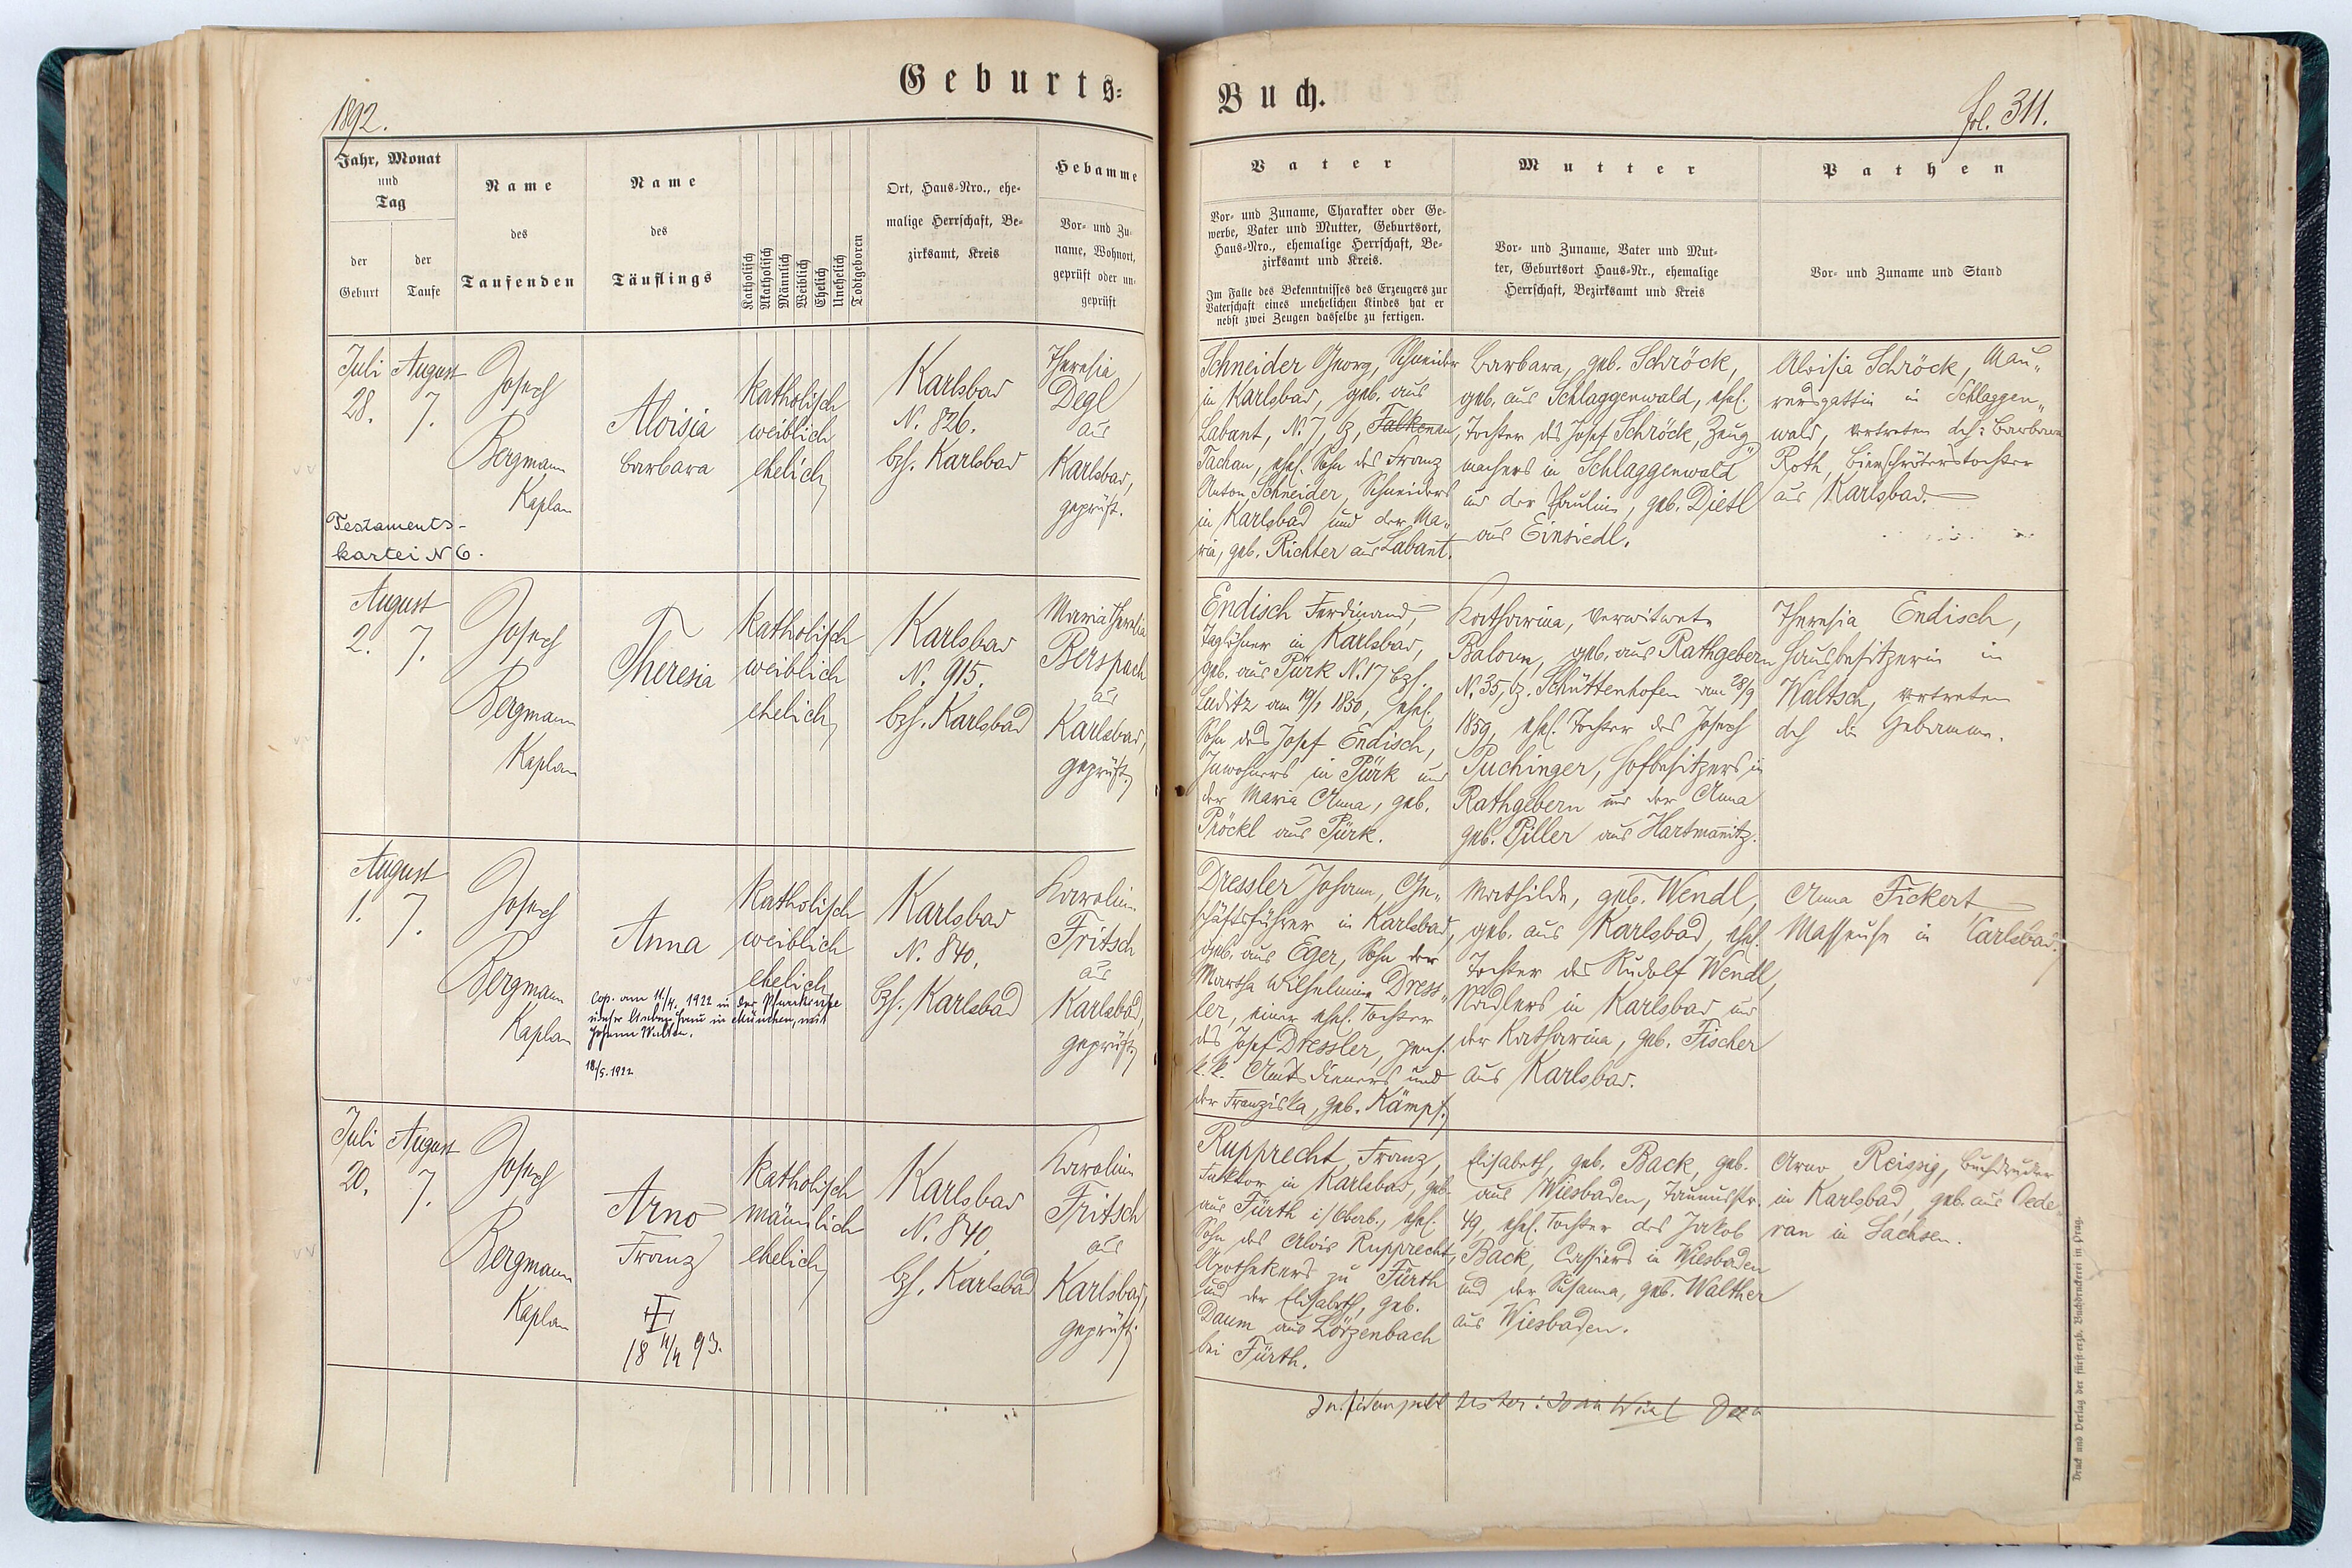 Geburts-
1892.
Jahr, Monat
und
Tag
der
Geburt
der
Taufe
Name
des
Taufenden
Name
des
Täuflings
Katholisch
Akatholisch
Männlich
Weiblich
Ehelich
Unehelich
Todtgeboren
Ort, Haus-Nro., ehe-
malige Herrschaft, Be-
zirksamt, Kreis
Hebamme
Vor- und Zu-
name, Wohnort,
geprüft oder un-
geprüft
Juli
28.
August
7.
Josef
Bergmann
Kaplan
Testaments-
kartei N 6.
Aloisia
Barbara
katholisch
weiblich
ehelich
Karlsbad
N. 826.
bzh. Karlsbad
Theresia
Degl
aus
Karlsbad,
geprüft.
August
2. 7.
Josef
Bergmann
Kaplan
Theresia
katholisch
weiblich
ehelich
Karlsbad
N. 915.
bzh. Karlsbad
Maria Theresia
Berspach
aus
Karlsbad,
geprüft.
August
1. 7.
Josef
Bergmann
Kaplan
Anna
Cop. am 11./4. 1922 in der Pfarrkirche
in München, mit
18/5. 1922
katholisch
weiblich
ehelich
Karlsbad
N. 840.
bzh. Karlsbad
Karolina
Fritsch
aus
Karlsbad,
geprüft.
Juli
20.
August
7.
Josef
Bergmann
Kaplan
Arno
Franz
18 11/4 93.
katholisch
männlich
ehelich
Karlsbad
N. 840
bzh. Karlsbad
Karolina
Fritsch
aus
Karlsbad,
geprüft.
Buch.
fol. 311.
Vater
Vor- und Zuname, Charakter oder Ge-
werbe, Vater und Mutter, Geburtsort,
Haus-Nro., ehemalige Herrschaft, Be-
zirksamt und Kreis.
Im Falle des Bekenntnisses des Erzeugers zur
Vaterschaft eines unehelichen Kindes hat er
nebst zwei Zeugen dasselbe zu fertigen.
Mutter
Vor- und Zuname, Vater und Mut-
ter, Geburtsort Haus-Nr., ehemalige
Herrschaft, Bezirksamt und Kreis
Pathen
Vor- und Zuname und Stand
Schneider Georg, Schneider
in Karlsbad, geb. aus
Labant, N. 7, bz. Falkenau,
Tachau, ehel. Sohn des Franz
Anton Schneider, Schneiders
in Karlsbad und der Ma-
ria, geb. Richter aus Labant.
Barbara, geb. Schröck,
geb. aus Schlaggenwald, ehel.
Tochter des Josef Schröck, Zeug-
machers in Schlaggenwald
und der Paulina, geb. Dietl
aus Einsiedl.
Aloisia Schröck, Mau-
rersgattin in Schlaggen-
wald, vertreten dch: Barbara
Roth, Bierschröterstochter
aus Karlsbad.
Endisch Ferdinand,
Taglöhner in Karlsbad,
geb. aus Pürk N. 17 bzh.
Luditz am 19/1 1850, ehel.
Sohn des Josef Endisch,
Inwohners in Pürk und
der Maria Anna, geb.
Pröckl aus Pürk.
Katharina, verwitwete
Baloun, geb. aus Rathgebern
N. 35, bz. Schüttenhofen am 28/9
1859, ehel. Tochter des Josef
Puchinger, Hofbesitzers in
Rathgebern und der Anna
geb. Piller aus Hartmanitz.
Theresia Endisch,
Hausbesitzerin in
Waltsch, vertreten
dch die Hebamme.
Dressler Johann, Ge-
schäftsführer in Karlsbad,
geb. aus Eger, Sohn der
Martha Wilhelmine Dress-
ler, einer ehel. Tochter
des Josef Dressler, pens.
k. k. Amtsdieners und
der Franziska, geb. Kämpf.
Mathilde, geb. Wendl,
geb. aus Karlsbad, ehel.
Tochter des Rudolf Wendl,
Nadlers in Karlsbad und
der Katharina, geb. Fischer
aus Karlsbad.
Anna Fickert
Masseuse in Carlsbad.
Rupprecht Franz,
Faktor in Karlsbad, geb.
aus Fürth i/Oberb., ehel.
Sohn des Alois Rupprecht,
Apothekers zu Fürth
und der Elisabeth, geb.
Daum aus Lörzenbach
bei Fürth.
Elisabeth, geb. Back, geb.
aus Wiesbaden, Taunusstr.
49, ehel. Tochter des Jakob
Back, Cassiers in Wiesbaden
und der Susanna, geb. Walther
aus Wiesbaden.
Arno Reissig, Buchdrucker
in Karlsbad, geb. aus Oede-
ran in Sachsen.
Druck und Verlag der fürst-erzb. Buchdruckerei in Prag.